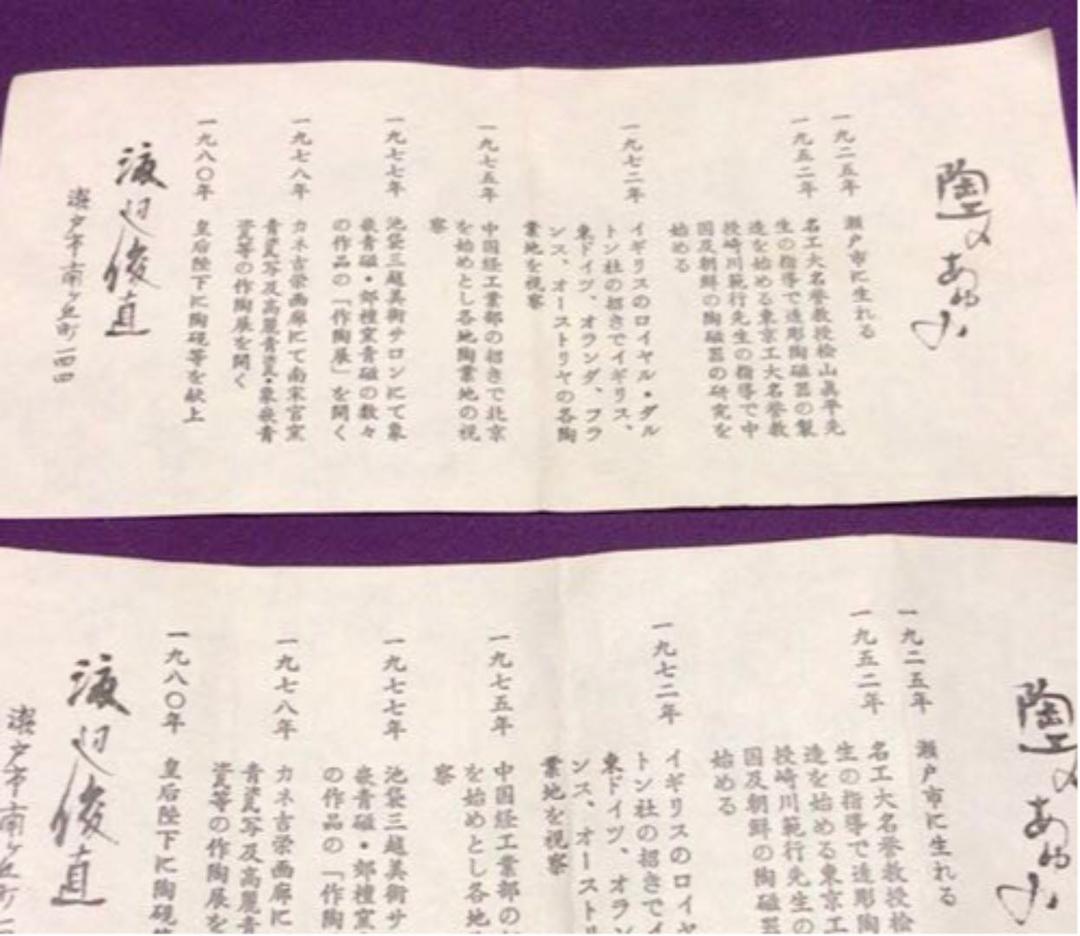 陶工のあゆみ
一九二五年 瀬戸市に生れる
一九五二年 名工大名誉教授桧山真平先
生の指導で造彫陶磁器の製
造を始める東京工大名誉教
授崎川範行先生の指導で中
国及朝鮮の陶磁器の研究を
始める
一九七二年 イギリスのロイヤル・ダル
トン社の招きでイギリス、
東ドイツ、オランダ、フラ
ンス、オーストリヤの各陶
業地を視察
一九七五年 中国経工業部の招きで北京
を始めとし各地陶業地の視
察
一九七七年 池袋三越美術サロンにて象
嵌青磁・郊檀窯青磁の数々
の作品の「作陶展」を開く
一九七八年 カネ吉崇画廊にて南宋官窯
青瓷写及高麗青瓷・象嵌青
瓷等の作陶展を開く
一九八〇年 皇后陛下に陶硯等を献上
渡辺俊直
瀬戸市南ヶ丘町一四四
陶工のあゆみ
一九二五年 瀬戸市に生れる
一九五二年 名工大名誉教授桧
生の指導で造彫陶
造を始める東京工
授崎川範行先生の
国及朝鮮の陶磁器
始める
一九七二年 イギリスのロイヤ
トン社の招きでイ
東ドイツ、オラン
ンス、オースト
業地を視察
一九七五年 中国経工業部の
を始めとし各地
察
一九七七年 池袋三越美術サ
嵌青磁・郊檀窯
の作品の「作陶
一九七八年 カネ吉崇画廊に
青瓷写及高麗青
瓷等の作陶展を
一九八〇年 皇后陛下に陶硯
渡辺俊直
瀬戸市南ヶ丘町一